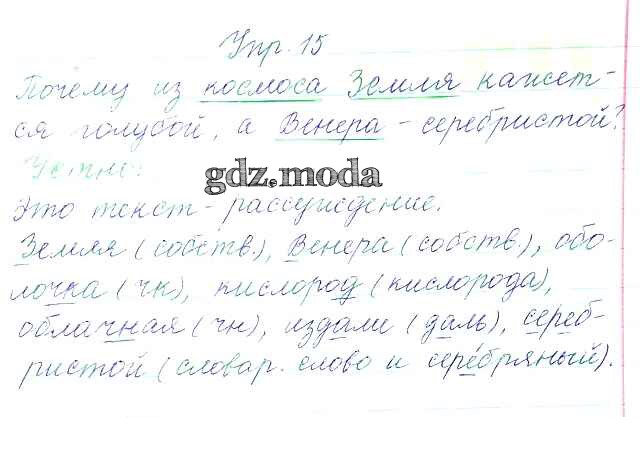 Упр. 15
Почему из космоса Земля кажет-
ся голубой, а Венера - серебристой?
Устно:
gdz.moda
Это текст - рассуждение.
Земля (собств.), Венера (собств.), обо-
лочка (чк), кислород (кислорода),
облачная (чн), издали (даль), сереб-
ристой (словар. слово и сере́бряный).